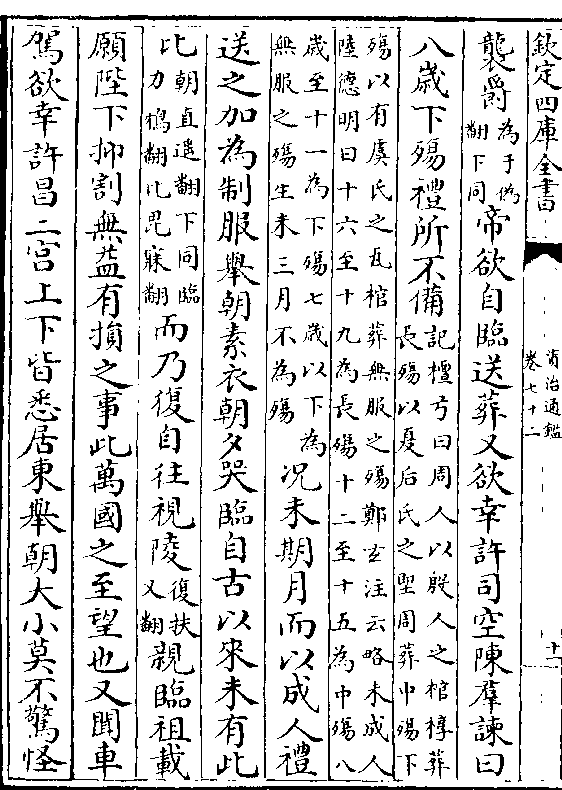 欽定四庫全書
資治通鑑
卷七十二
十一
襲爵為于偽翻下同帝欲自臨送葬又欲幸許司空陳羣諫曰
八歲下殤禮所不備記檀弓曰周人以殷人之棺椁葬長殤以夏后氏之堲周葬中殤下
殤以有虞氏之瓦棺葬無服之殤鄭𤣥注云略未成人陸德明曰十六至十九為長殤十二至十五為中殤八
歲至十一為下殤七歲以下為無服之殤生未三月不為殤况未期月而以成人禮
送之加為制服舉朝素衣朝夕哭臨自古以來未有此
比朝直遥翻下同臨力鴆翻比毘寐翻而乃復自往視陵復扶又翻親臨祖載
願陛下抑割無益有損之事此萬國之至望也又聞車
駕欲幸許昌二宮上下皆悉居東舉朝大小莫不驚怪